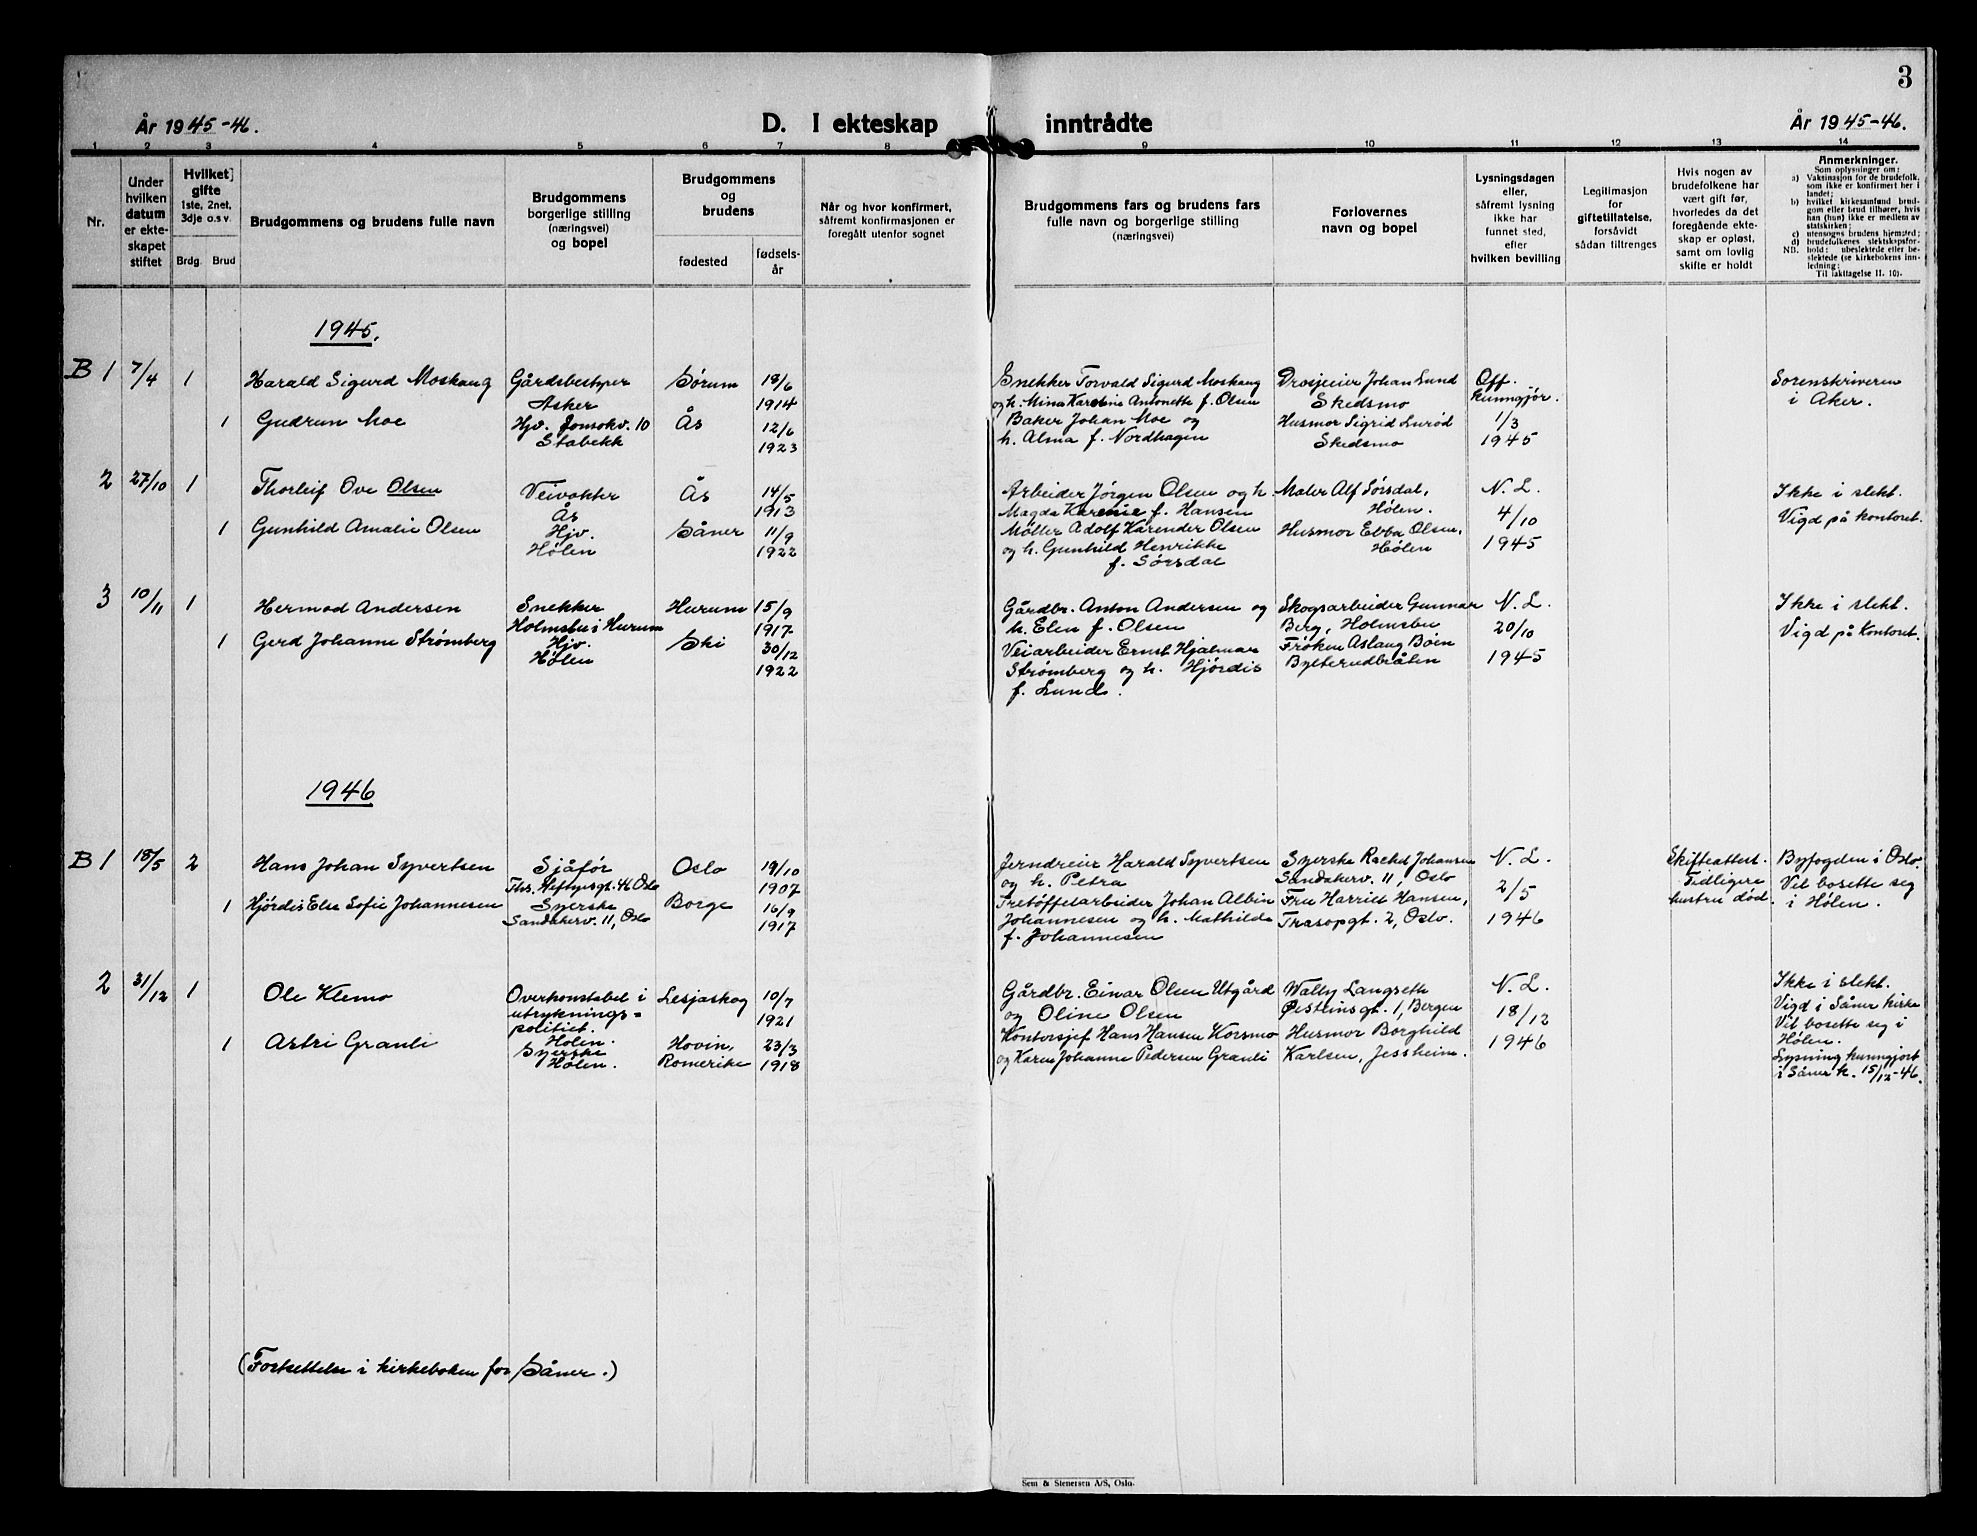 3
År 1945-46.
D. I ekteskap inntrådte
År 1945-46.
1 2 3 4 5 6 7 8 9 10 11 12 13 14
Nr.
Under
hvilken
datum
er ekte-
skapet
stiftet
Hvilket
gifte
1ste, 2net,
3dje o.s.v.
Brdg. Brud
Brudgommens og brudens fulle navn
Brudgommens
borgerlige stilling
(næringsvei)
og bopel
Brudgommens
og
brudens
fødested
fødsels-
år
Når og hvor konfirmert,
såfremt konfirmasjonen er
foregålt utenfor sognet
Brudgommens fars og brudens fars
fulle navn og borgerlige stilling
(næringsvei)
Forlovernes
navn og bopel
Lysningsdagen
eller,
såfremt lysning
ikke har
funnet sted,
efter
hvilken bevilling
Legitimasjon
for
giftetillatelse,
forsåvidt
sådan tiltrenges
Hvis nogen av
brudefolkene har
vært gift før,
hvorledes da det
foregående ekte-
skap er opløst,
samt om lovlig
skifte er holdt
Anmerkninger.
Som oplysninger om:
a) Vaksinasjon for de brudefolk,
som ikke er konfirmert her i
landet;
b) hvilket kirkesamfund brud-
gom eller brud tilhører, hvis
han (hun) ikke er medlem av
statskirken;
c) utensogns brudens hjemsted;
d) brudefolkenes slektskapsfor-
hold: ubeslektede eller be-
slektede (se kirkebokens inn-
ledning;
NB.
Til iakttagelse II. 10).
1945.
B 1
7/4
1
Harald Sigurd Moskaug
Gårdsbestyrer
Asker
Sørum
18/6
1914
Snekker Torvald Sigurd Moskaug
og h. Mina Karoline Antonette f. Olsen
Drosjeeier Johan Lund
Skedsmo
Off.
kunngjør.
1/3
1945
Sorenskriveren
i Aker.
1
Gudrun Moe
Hjv. Jonsokv. 10
Stabekk
Ås
12/6
1923
Baker Johan Moe og
h. Alma f. Nordhagen
Husmor Sigrid Lurød
Skedsmo
2
27/10
1
Thorleif Ove Olsen
Veivokter
Ås
Ås
14/5
1913
Arbeider Jørgen Olsen og h.
Magda Karenie f. Hansen
Maler Alf Sørsdal,
Hølen.
N. L.
4/10
1945
Ikke i slekt.
Vigd på kontoret.
1
Gunhild Amalie Olsen
Hjv.
Hølen
Såner
11/9
1922
Møller Adolf Karender Olsen
og h. Gunhild Henrikke
f. Sørsdal
Husmor Ebba Olsen,
Hølen
3
10/11
1
Hermod Andersen
Snekker
Holmsbu i Hurum
Hurum
15/9
1917
Gårdbr. Anton Andersen og
h. Elen f. Olsen
Skogsarbeider Gunnar
Berg, Holmsbu
N. L.
20/10
1945
Ikke i slekt.
Vigd på kontoret.
1
Gerd Johanne Strømberg
Hjv.
Hølen
Ski
30/12
1922
Veiarbeider Ernst Hjalmar
Strømberg og h. Hjørdis
f. Lund.
Frøken Aslaug Bøen
1946
B 1
18/5
2
Hans Johan Syvertsen
Sjåfør
Ths. Heftyesgt. 46 Oslo
Oslo
19/10
1907
Jerndreier Harald Syvertsen
og h. Petra
Syerske Rachel Johansen
Sandakerv. 11, Oslo
N. L.
2/5
1946
Skifteattest.
Tidligere
hustru død.
Byfogden i Oslo
Vil bosette seg
i Hølen.
1
Hjørdis Else Sofie Johannesen
Syerske
Sandakerv. 11, Oslo
Borge
16/9
1917
Tretøffelarbeider Johan Albin
Johannesen og h. Mathilde
f. Johannesen
Fru Harriet Hansen,
Trasopgt. 2, Oslo.
2
31/12
1
Ole Klemo
Overkonstabel i
utryknings=
politiet.
Hølen.
Lesjaskog
10/7
1921
Gårdbr. Einar Olsen Utgård
og Oline Olsen
Wally Langseth
Øisteinsgt. 1, Bergen
N. L.
18/12
1946
Ikke i slekt.
Vigd i Såner kirke
Vil bosette seg i
Hølen.
Lysning kunngjort
i Såner k. 15/12-46.
1
Astri Granli
Syerske
Hølen.
Hovin,
Romerike
23/3
1918
Kontorsjef Hans Hansen Korsmo
og Karen Johanne Pedersen Granli
Husmor Borghild
Karlsen, Jessheim.
(Fortsettelse i kirkeboken for Såner.)
Sem & Stenersen A/S, Oslo.